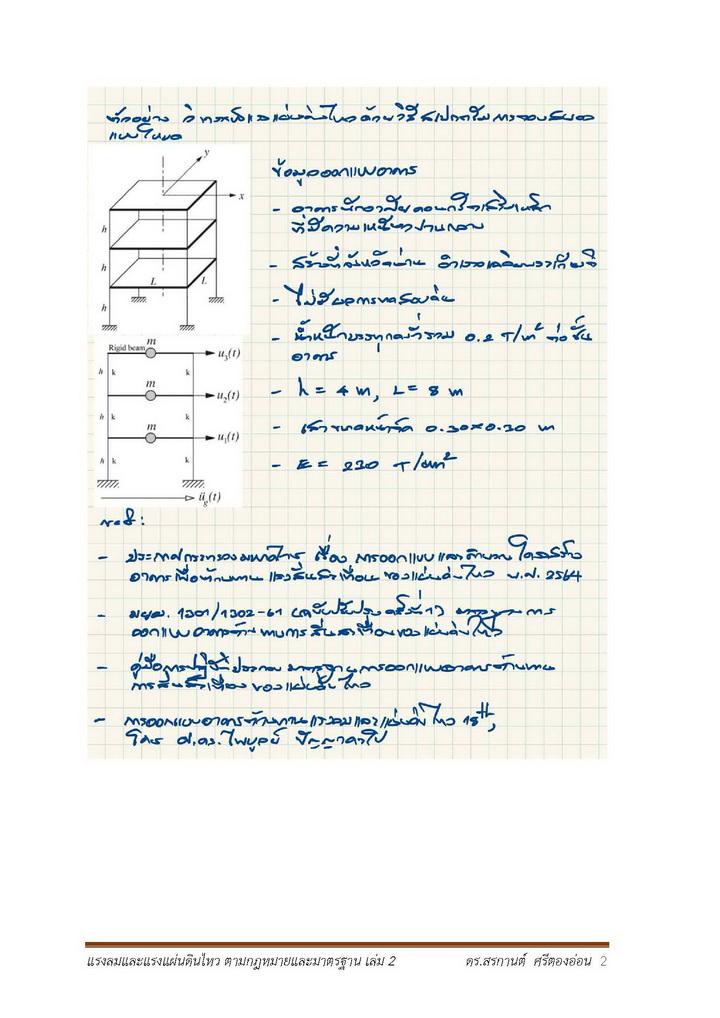 ตัวอย่าง วิเคราะห์แรงแผ่นดินไหวด้วยวิธีสเปกตรัมการตอบสนอง
แบบโหมด
ข้อมูลออกแบบอาคาร
- อาคารพักอาศัยคอนกรีตเสริมเหล็ก
ที่มีความเหนียวปานกลาง
- สร้างที่จังหวัดน่าน อำเภอเฉลิมพระเกียรติ
- ไม่มีผลการทดสอบดิน
- น้ำหนักบรรทุกคงที่รวม 0.2 T/m² ต่อชั้น
อาคาร
- h = 4 m, L = 8 m
- เสาขนาดหน้าตัด 0.30×0.30 m
- E = 230 T/cm²
y
x
h
h
h
L
L
Rigid beam
m
u₃(t)
h
k
k
m
u₂(t)
h
k
k
m
u₁(t)
h
k
k
ü_g(t)
Ref:
- ประกาศกระทรวงมหาดไทย เรื่อง การออกแบบและคำนวณโครงสร้าง
อาคารเพื่อต้านทานแรงสั่นสะเทือนของแผ่นดินไหว พ.ศ. 2564
- มยผ. 1301/1302-61 (ฉบับปรับปรุงครั้งที่ 1) มาตรฐานการ
ออกแบบอาคารต้านทานการสั่นสะเทือนของแผ่นดินไหว
- คู่มือการปฏิบัติประกอบมาตรฐานการออกแบบอาคารต้านทาน
การสั่นสะเทือนของแผ่นดินไหว
- การออกแบบอาคารต้านทานแรงลมและแผ่นดินไหว 18th,
โดย ศ.ดร.ไพบูลย์ ปัญญาคะโป
แรงลมและแรงแผ่นดินไหว ตามกฎหมายและมาตรฐาน เล่ม 2 ดร.สรกานต์ ศรีตองอ่อน 2